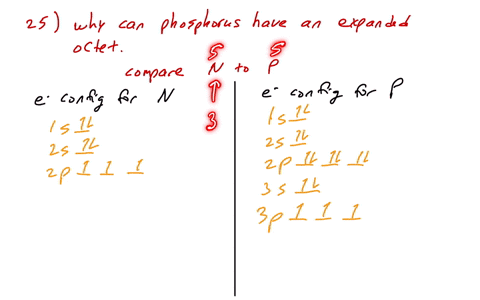 25) why can phosphorus have an expanded
octet.
5 5
compare N to P
↑
3
e⁻ config for N
1s ↑↓
2s ↑↓
2p ↑ ↑ ↑
e⁻ config for P
1s ↑↓
2s ↑↓
2p ↑↓ ↑↓ ↑↓
3s ↑↓
3p ↑ ↑ ↑